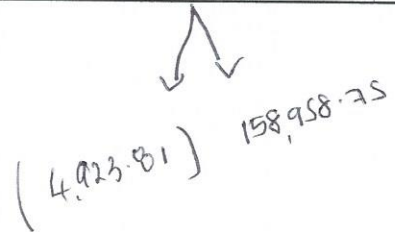 (4,923.81) 158,958.75